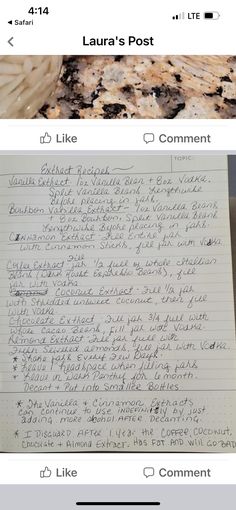 4:14
LTE
◀ Safari
Laura's Post
Like Comment
TOPIC:
Extract Recipes
Vanilla Extract 1oz Vanilla Bean + 8oz Vodka.
Split Vanilla Beans Lengthwise
Before placing in jar.
Bourbon Vanilla Extract - 1oz Vanilla Beans
+ 8oz Bourbon. Split Vanilla Beans
Lengthwise Before placing in jar.
Cinnamon Extract - Fill Entire jar
with Cinnamon Sticks, fill jar with Vodka
Coffee Extract - Fill jar 1/2 full of whole Italian
Beans (Dark Roast Espresso Beans), fill
jar with Vodka
Coconut Extract - Fill 1/2 jar
with Shredded unsweet Coconut, then fill
with Vodka
Chocolate Extract Fill jar 3/4 full with
Cacao Beans, fill jar with Vodka.
Almond Extract - Fill jar full with
Fresh slivered almonds, fill jar with Vodka.
* Shake jars Every Few Days.
* Leave 1" headspace when filling jars
* Leave in Dark Pantry for 6 months.
Decant + Put into Smaller Bottles
* The Vanilla + Cinnamon Extracts
can continue to use INDEFINITELY by just
adding more alcohol AFTER DECANTING.
* I DISCARD AFTER 1 year the COFFEE, COCONUT,
Chocolate + Almond Extract. HAS FAT AND WILL GO BAD
Like Comment